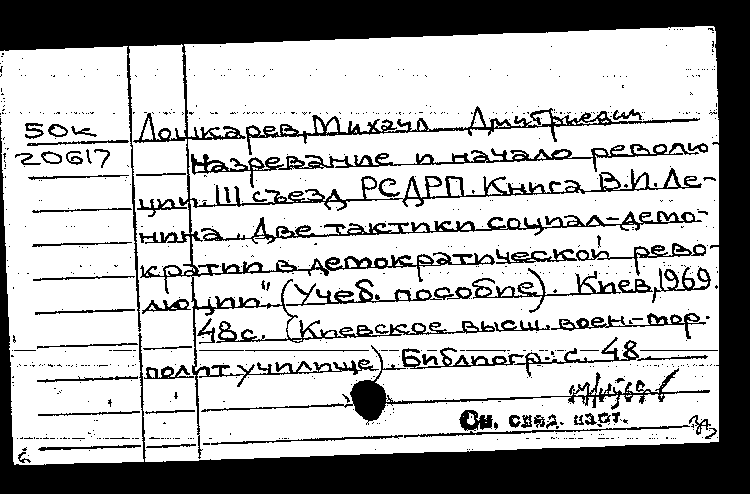 50к Лошкарев, Михаил Дмитриевич
20617 Назревание и начало револю-
ции. III съезд РСДРП. Книга В.И. Ле-
нина „Две тактики социал-демо-
кратии в демократической рево-
люции". (Учеб. пособие). Киев, 1969.
48с. (Киевское высш. воен.-мор.
полит. училище). Библиогр.: с. 48
См. след. карт.